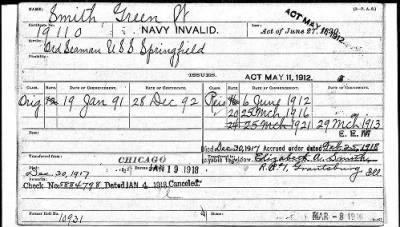 NAME: (3-7 A. G.)
Smith, Green W
ACT MAY 11, 1912.
19110 NAVY INVALID. Act of June 27, 1890
Ord Seaman U.S.S. Springfield
ISSUES. ACT MAY 11, 1912.
CLASS. RATE. DATE OF COMMENCEMENT. DATE OF CERTIFICATE. CLASS. RATE. DATE OF COMMENCEMENT. DATE OF CERTIFICATE.
Orig 19 Jan 91 28 Dec 92 Reis 6 June 1912
20 25 Mch 1916
24 25 Mch 1921 29 Mch 1913
E. E. M
Died Dec 30, 1917 Accrued order dated Feb 25, 1918
Transferred from CHICAGO payable to widow Elizabeth A. Smith
Dec. 30, 1917 JAN 19 1918 R.#1, Grantsburg Ill
Check No 5884798 Dated JAN 4 1918 Canceled.
Former Roll No 10931 MAR -8 1918